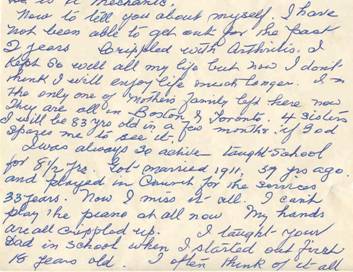 he is a mechanic.
Now to tell you about myself I have
not been able to get out for the past
2 years Crippled with Arthritis. I
kept so well all my life but now I don't
think I will enjoy life much longer. I'm
the only one of Mothers family left here now
They are all in Boston & Toronto. 4 sisters
I will be 83 yrs old in a few months if God
spares me to see it.
I was always so active taught School
for 8½ yrs. Got married 1911, 59 yrs ago.
and played in Church for the services
33 years. Now I miss it all. I can't
play the piano at all now My hands
are all crippled up. I taught your
Dad in school when I started out first
18 years old. I often think of it all